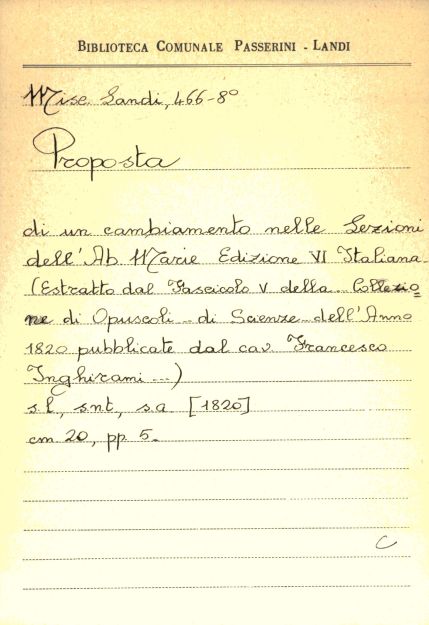 BIBLIOTECA COMUNALE PASSERINI - LANDI
Misc. Landi, 466-8°
Proposta
di un cambiamento nelle Lezioni
dell'Ab Marie Edizione VI Italiana.
(Estratto dal Fascicolo V della Collezio=
ne di Opuscoli .. di Scienze dell'Anno
1820 pubblicate dal cav Francesco
Inghirami ...)
s.l., s.n.t., s.a. [1820]
cm. 20, pp 5.
C